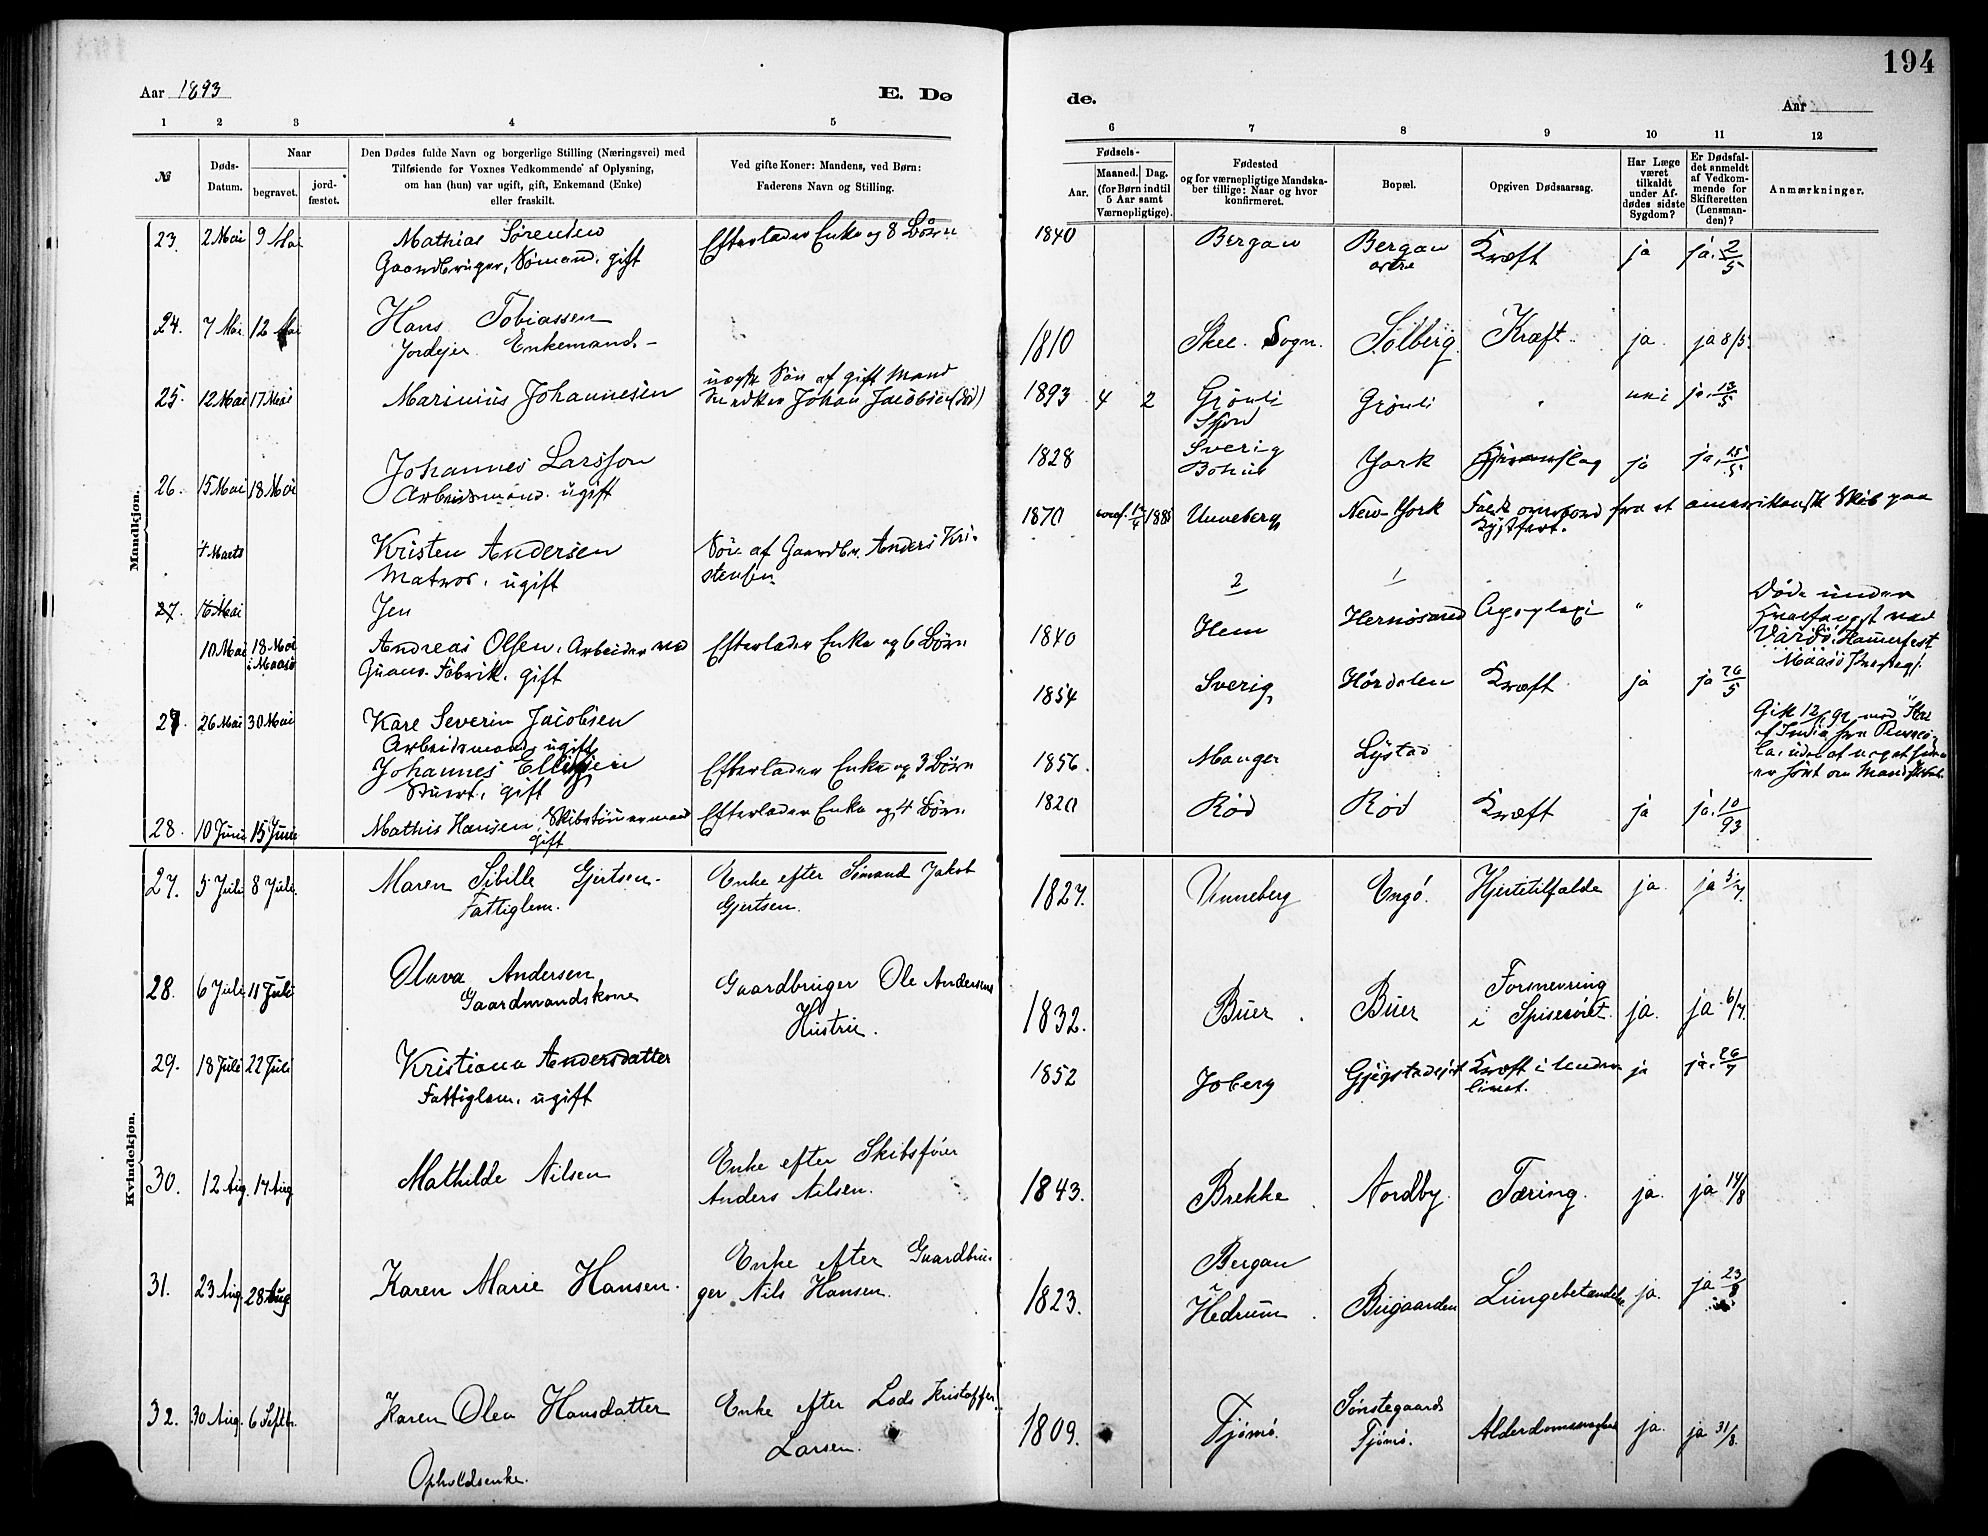 194
Aar 1893
E. Dø
de.
Aar
1 2 3 4 5 6 7 8 9 10 11 12
№
Døds-
Datum.
Naar
begravet.
jord-
fæstet.
Den Dødes fulde Navn og borgerlige Stilling (Næringsvei) med
Tilføiende for Voxnes Vedkommende af Oplysning,
om han (hun) var ugift, gift, Enkemand (Enke)
eller fraskilt.
Ved gifte Koner: Mandens, ved Børn:
Faderens Navn og Stilling.
Fødsels-
Aar.
Maaned.
Dag.
(for Børn indtil
5 Aar samt
Værnepligtige).
Fødested
og for værnepligtige Mandska-
ber tillige: Naar og hvor
konfirmeret.
Bopæl.
Opgiven Dødsaarsag.
Har Læge
været
tilkaldt
under Af-
dødes sidste
Sygdom?
Er Dødsfal-
det anmeldt
af Vedkom-
mende for
Skifteretten
(Lensman-
den)?
Anmærkninger.
Mandkjøn.
23. 2 Mai 9 Mai Mathias Sørensen Efterlader Enke og 8 Børn 1840 Bergan Bergan Kræft ja ja. 2/5
Gaardbruger, Sømand, gift
24. 7 Mai 12 Mai Hans Tobiassen 1810 Skee Sogn. Solberg Kræft ja ja 8/5
Jordejer Enkemand.
25. 12 Mai 17 Mai Marinius Johannesen uægte Søn af gift Mand 1893 4 2 Grønli Grønli nei ja. 13/5
Snedker Johan Jacobsen (død)
26. 15 Mai 18 Mai Johannes Larsson 1828 Sverig York ja ja. 15/5
Arbeidsmand. ugift
4 Marts Kristen Andersen Søn af Gaardbr. Anders Kri- 1870 Unneberg New-York Faldt overbord fra et amerikansk Skib paa
Matros, ugift stensen Kystfart.
27. 16 Mai Jen
2 1
10 Mai 18 Mai i Maasø Andreas Olsen, Arbeider ved Efterlader Enke og 6 Børn 1840 Hem Hernøsand Apoplexi "
Guano-Fabrik. gift
Døde under
Hvalfangst ved
Vardø, Hammerfest
Maasø Prestegj.
27 26 Mai 30 Mai Kare Severin Jacobsen 1854 Sverig Hørdalen Kræft ja ja 26/5
Arbeidsmand, ugift
Johannes Ellefsen Efterlader Enke og 3 Børn 1856 Manger Lystad
Stuert, gift
28. 10 Juni 15 Juni Mathis Hansen, Skibstømmermand Efterlader Enke og 4 Børn 1820 Rød Rød Kræft ja ja. 10/93
gift
Kvindekjøn.
27. 5 Juli 8 Juli. Maren Sibille Gjertsen. Enke efter Sømand Jakob 1827. Unneberg Engø. Hjertetilfælde ja. ja 5/7.
Fattiglem. Gjertsen.
28. 6 Juli 11 Juli Olava Andersen Gaardbruger Ole Andersens 1832. Buer Buer Forsnevring ja. ja 6/7.
Gaardmandskone Hustru. i Spiserøret.
29. 18 Juli 22 Juli Kristiana Andersdatter 1852 Joberg Kræft i Under ja ja. 26/7
Fattiglem, ugift livet.
30. 12 Aug. 17 Aug Mathilde Nilsen Enke efter Skibsfører 1843. Brekke Nordby. Tæring. ja. ja 14/8
Anders Nilsen.
31. 23 Aug. 28 Aug Karen Marie Hansen. Enke efter Gaardbru- 1823. Bergan Bugaarden Lungebetændelse ja. ja 23/8
ger Nils Hansen. i Hedrum
32. 30 Aug. 6 Septbr. Karen Olea Hansdatter Enke efter Lods Kristoffer 1809. Tjømø. Sønstegaard Alderdomssvaghed ja. ja 31/8.
Opholdsenke. Larsen. Tjømø.